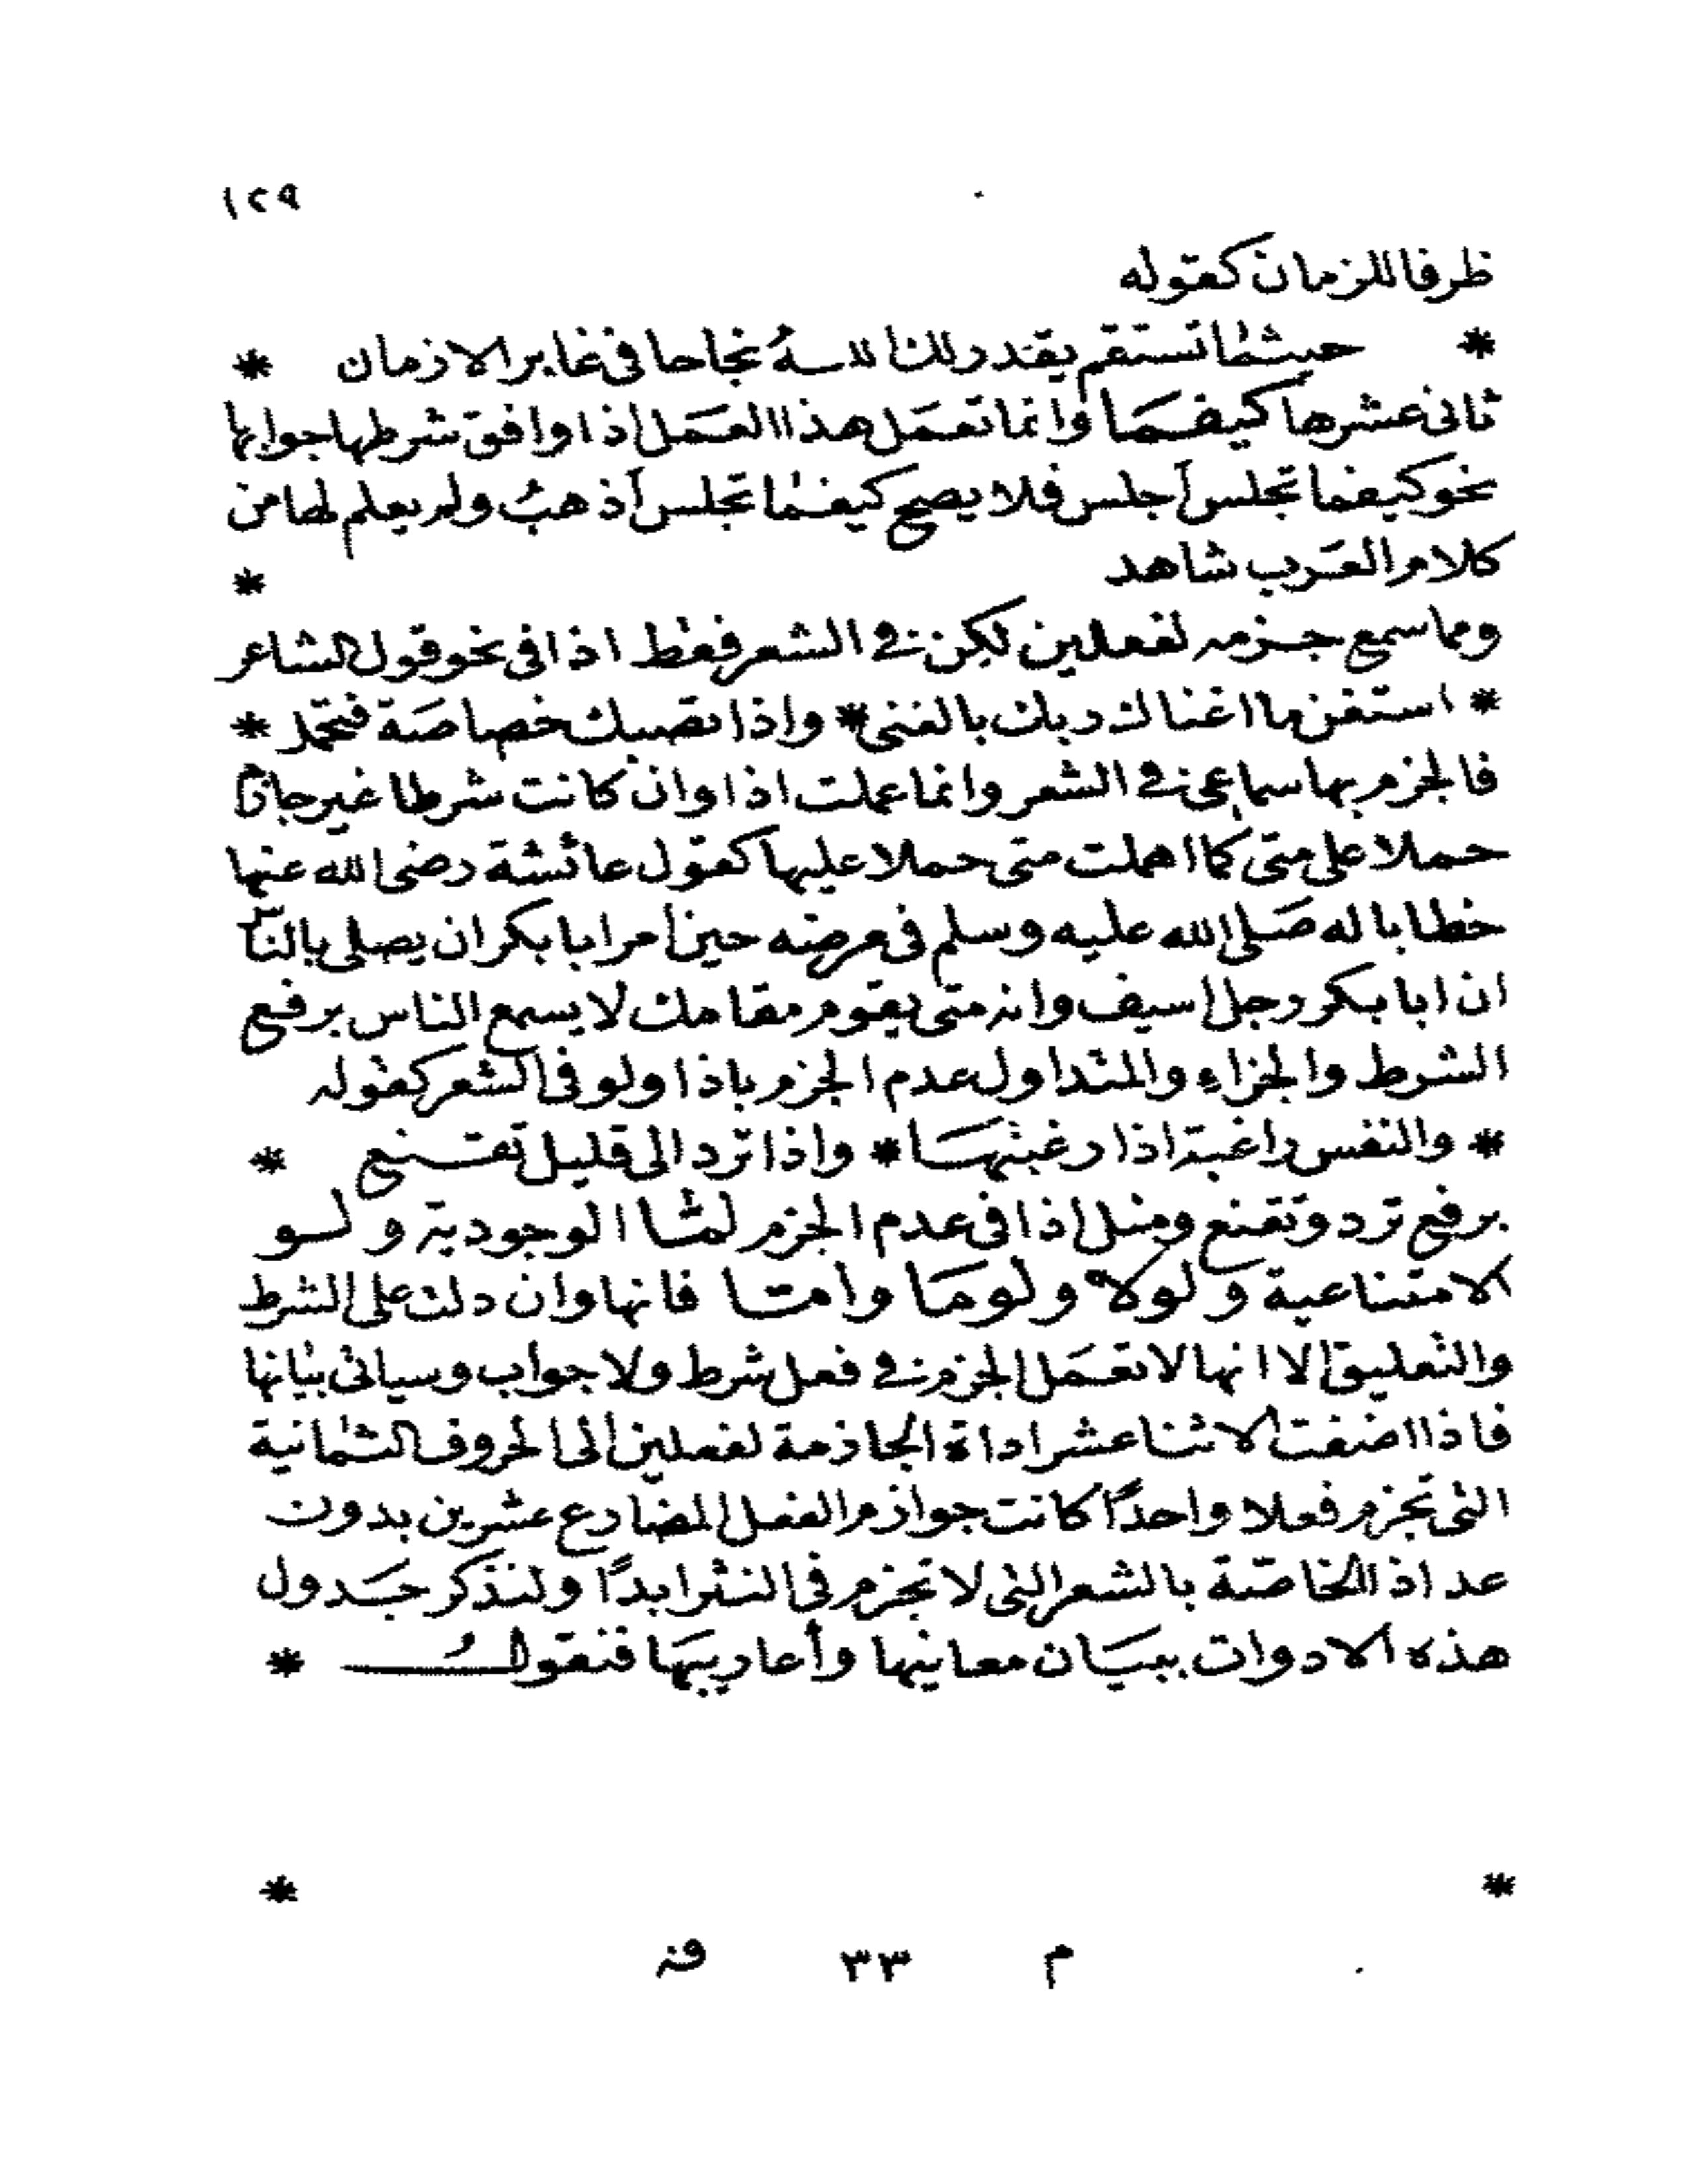 ١٢٩
ظرفا للزمان كقوله
* حيثما تستقم يقدر لك الله نجاحا فى غابر الازمان *
ثانى عشرها كيفما وانما تعمل هذا العمل اذا وافق شرطها جوابها
نحو كيفما تجلس أجلس فلا يصح كيفما تجلس أذهب ولم يعلم لها من
كلام العرب شاهد *
ومما سمع جزمه لفعلين لكن فى الشعر فقط اذا فى نحو قول الشاعر
* استغن ما اغناك ربك بالغنى * واذا تصبك خصاصة فتجمل *
فالجزم بها سماعى فى الشعر وانما عملت اذا وان كانت شرطا غير جازم
حملا على متى كما اهملت متى حملا عليها كقول عائشة رضى الله عنها
خطابا له صلى الله عليه وسلم فى مرضه حين أمر ابا بكر ان يصلى بالناس
ان ابا بكر رجل اسيف وانه متى يقوم مقامك لا يسمع الناس برفع
الشرط والجزاء والمتداول عدم الجزم باذا ولو فى الشعر كقوله
* والنفس راغبة اذا رغبتها * واذا ترد الى قليل تقنع *
برفع ترد وتقنع ومثل اذا فى عدم الجزم لما الوجودية ولو
الامتناعية ولولا ولوما وامّا فانها وان دلت على الشرط
والتعليق الا انها لا تعمل الجزم فى فعل شرط ولا جواب وسيأتى بيانها
فاذا اضفت الاثنا عشر اداة الجازمة لفعلين الى الحروف الثمانية
التى تجزم فعلا واحدًا كانت جوازم الفعل المضارع عشرين بدون
عد اذا الخاصة بالشعر التى لا تجزم فى النثر ابدًا ولنذكر جدول
هذه الادوات ببيان معانيها وأعاريبها فنقول *
* *
م ٣٣ فنه